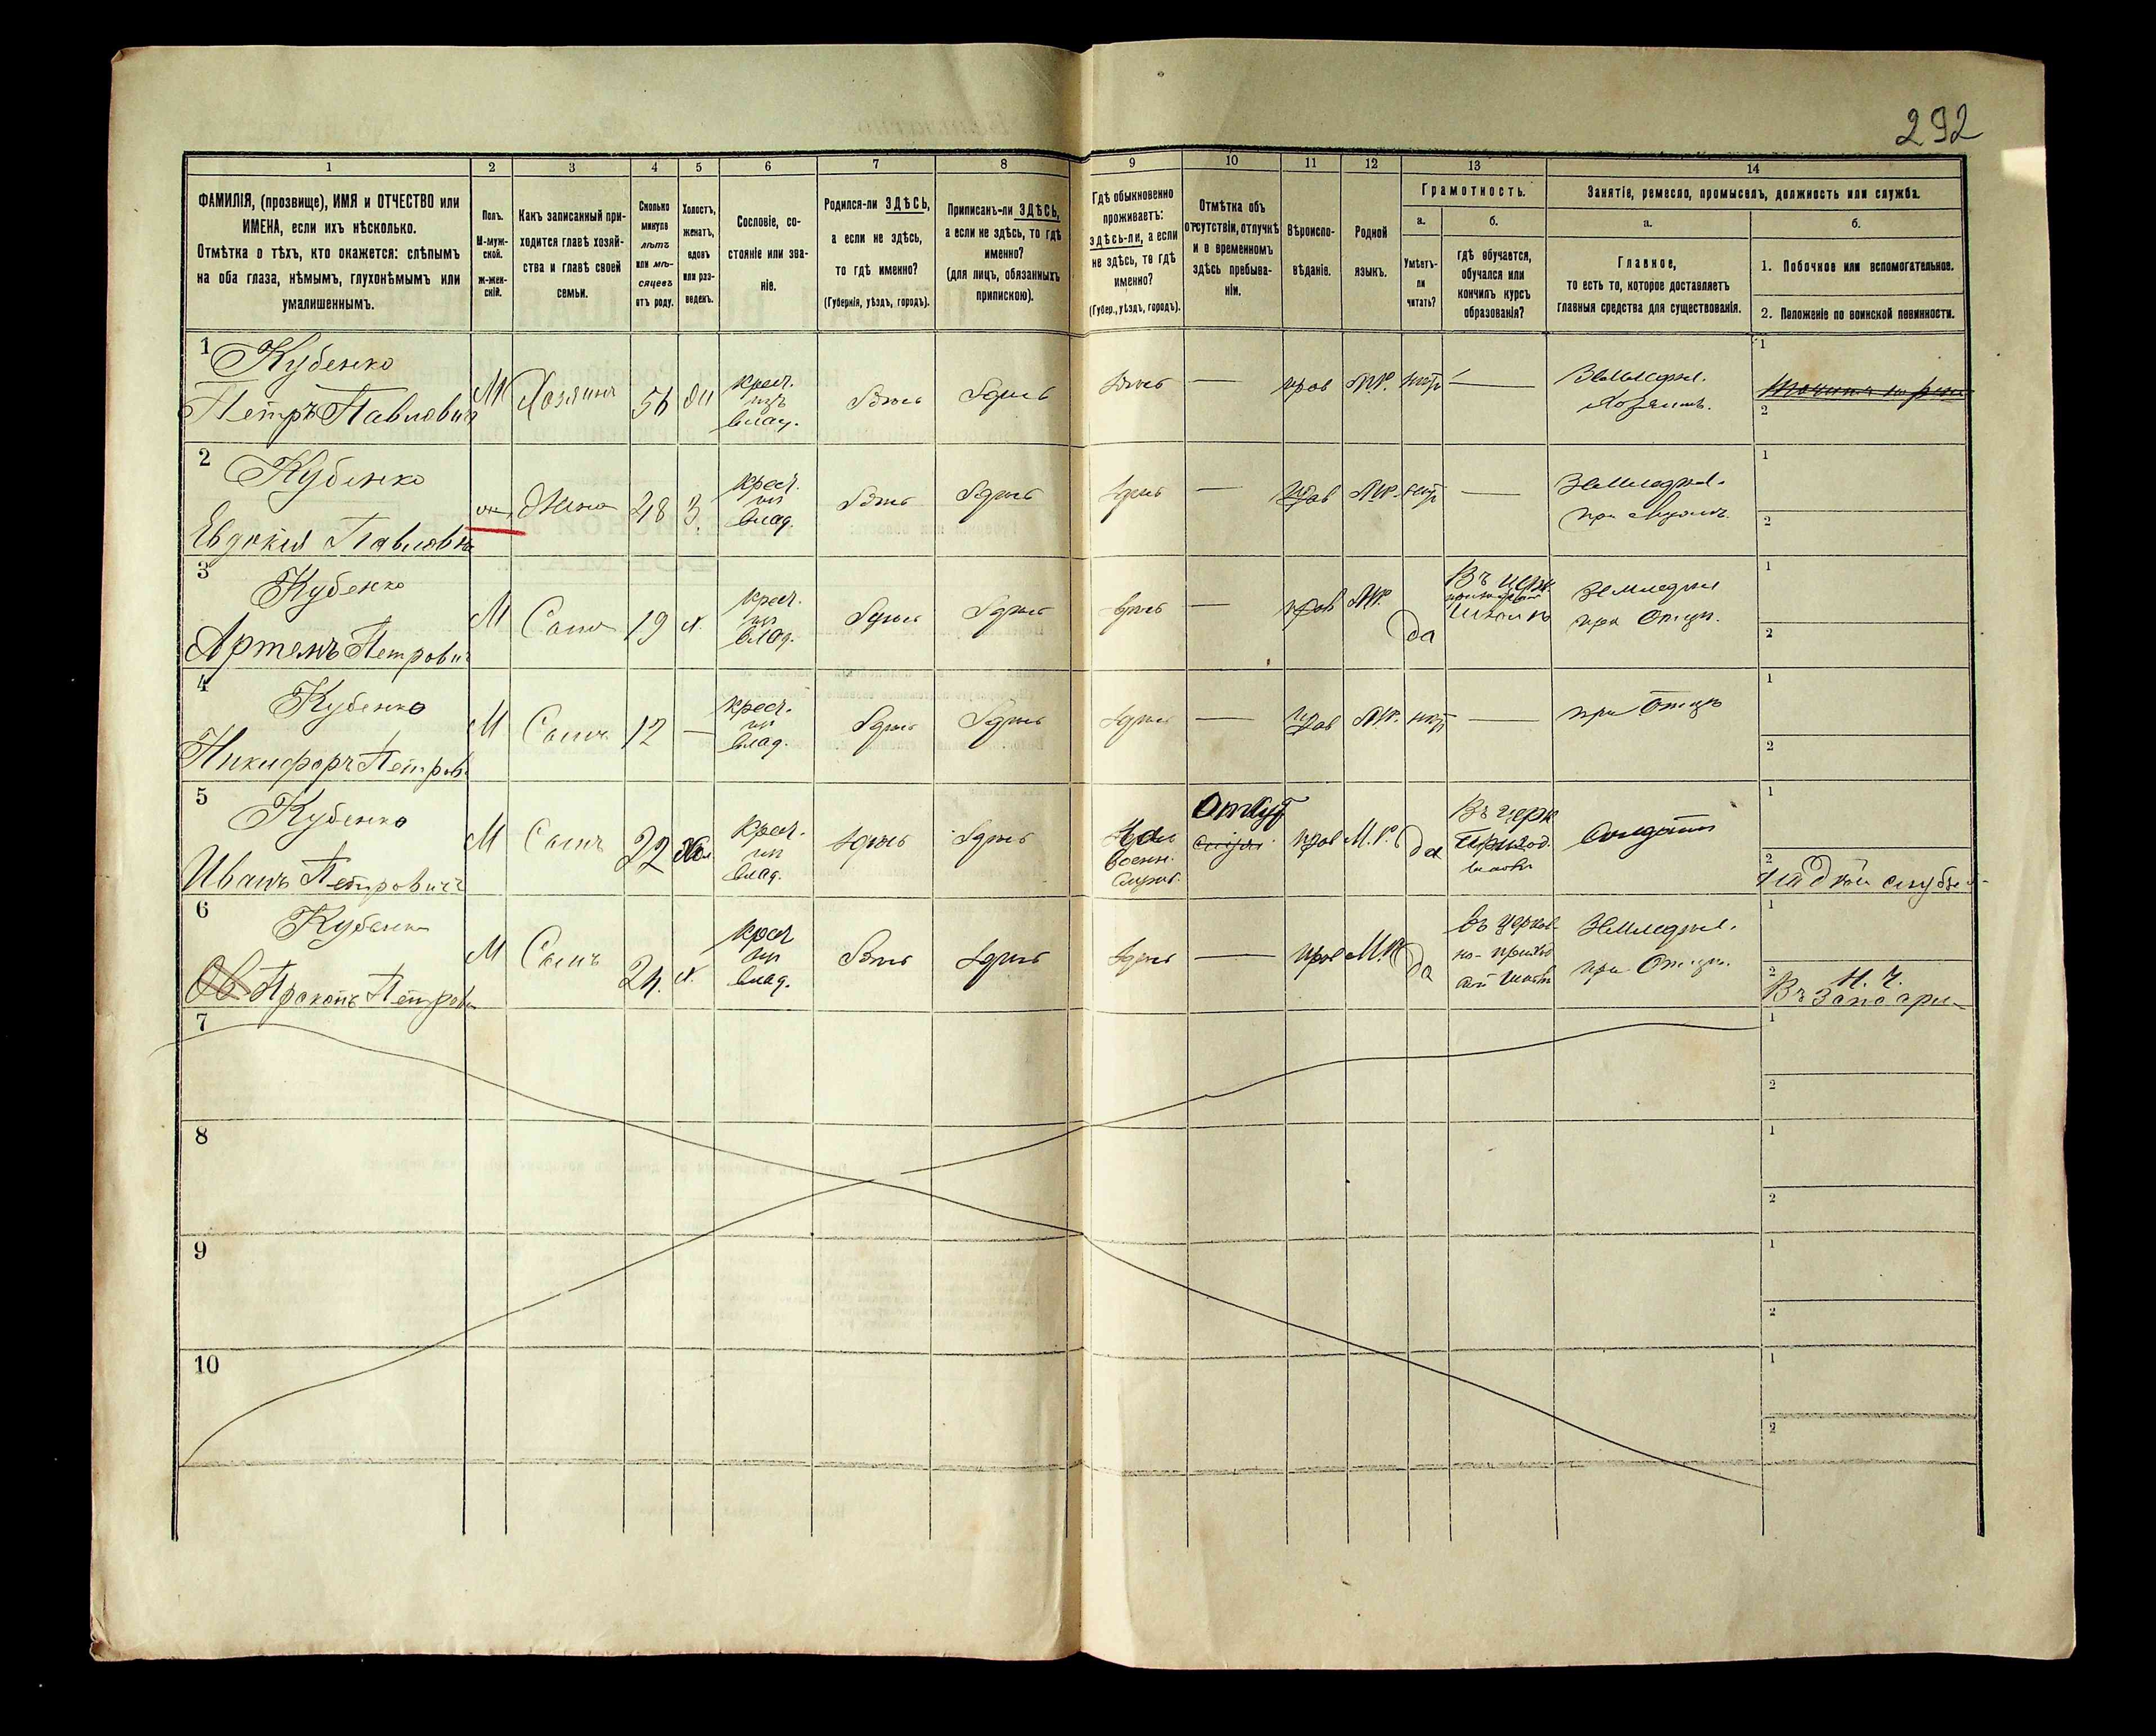 292
1 2 3 4 5 6 7 8 9 10 11 12 13 14
ФАМИЛІЯ, (прозвище), ИМЯ и ОТЧЕСТВО или
ИМЕНА, если ихъ нѣсколько.
Отмѣтка о тѣхъ, кто окажется: слѣпымъ
на оба глаза, нѣмымъ, глухонѣмымъ или
умалишеннымъ.
Полъ.
М-муж-
ской.
Ж-жен-
скій.
Какъ записанный при-
ходится главѣ хозяй-
ства и главѣ своей
семьи.
Сколько
минуло
лѣтъ
или мѣ-
сяцевъ
отъ роду.
Холостъ,
женатъ,
вдовъ
или раз-
веденъ.
Сословіе, со-
стояніе или зва-
ніе.
Родился-ли ЗДѢСЬ,
а если не здѣсь,
то гдѣ именно?
(Губернія, уѣздъ, городъ).
Приписанъ-ли ЗДѢСЬ,
а если не здѣсь, то гдѣ
именно?
(для лицъ, обязанныхъ
припискою).
Гдѣ обыкновенно
проживаетъ:
здѣсь-ли, а если
не здѣсь, то гдѣ
именно?
(Губер., уѣздъ, городъ).
Отмѣтка объ
отсутствіи, отлучкѣ
и о временномъ
здѣсь пребыва-
ніи.
Вѣроиспо-
вѣданіе.
Родной
языкъ.
Грамотность.
а.
Умѣетъ-
ли
читать?
б.
гдѣ обучается,
обучался или
кончилъ курсъ
образованія?
Занятіе, ремесло, промыселъ, должность или служба.
а.
Главное,
то есть то, которое доставляетъ
главныя средства для существованія.
б.
1. Побочное или вспомогательное.
2. Положеніе по воинской повинности.
1
Кубенко
Петръ Павловичъ
М Хозяинъ 56
крест.
изъ
влад.
Здѣсь Здѣсь Здѣсь — прав М.Р. нѣтъ —
Земледѣл.
Хозяинъ.
1
2
2
Кубенко
Евдокія Павловна
ж Жена 48 З.
крест.
из
влад.
Здѣсь Здѣсь Здѣсь — прав М.Р. нѣтъ —
Земледѣл.
при мужѣ.
1
2
3
Кубенко
Артемъ Петрович
М Сынъ 19 х.
крест.
из
влад.
Здѣсь Здѣсь Здѣсь — прав М.Р. да
Въ церк
приходской
школѣ
Земледѣл
при Отцѣ.
1
2
4
Кубенко
Никифоръ Петров
М Сынъ 12 —
крест.
из
влад.
Здѣсь Здѣсь Здѣсь — прав М.Р. нѣт —
при Отцѣ
1
2
5
Кубенко
Иванъ Петровичъ
М Сынъ 22 Хол
крест.
из
влад.
Здѣсь Здѣсь
На
военн.
служб.
прав М.Р. да
Въ церк
приход.
школѣ
Солдатъ
1
2
6
Кубенко
Прокопъ Петров
М Сынъ 24. х.
крест
из
влад.
Здѣсь Здѣсь Здѣсь — прав М.Р. да
въ церков-
но-приход
ской школѣ
Земледѣл.
при Отцѣ.
1
2
Н. Ч.
Въ Запас
7
1
2
8
1
2
9
1
2
10
1
2